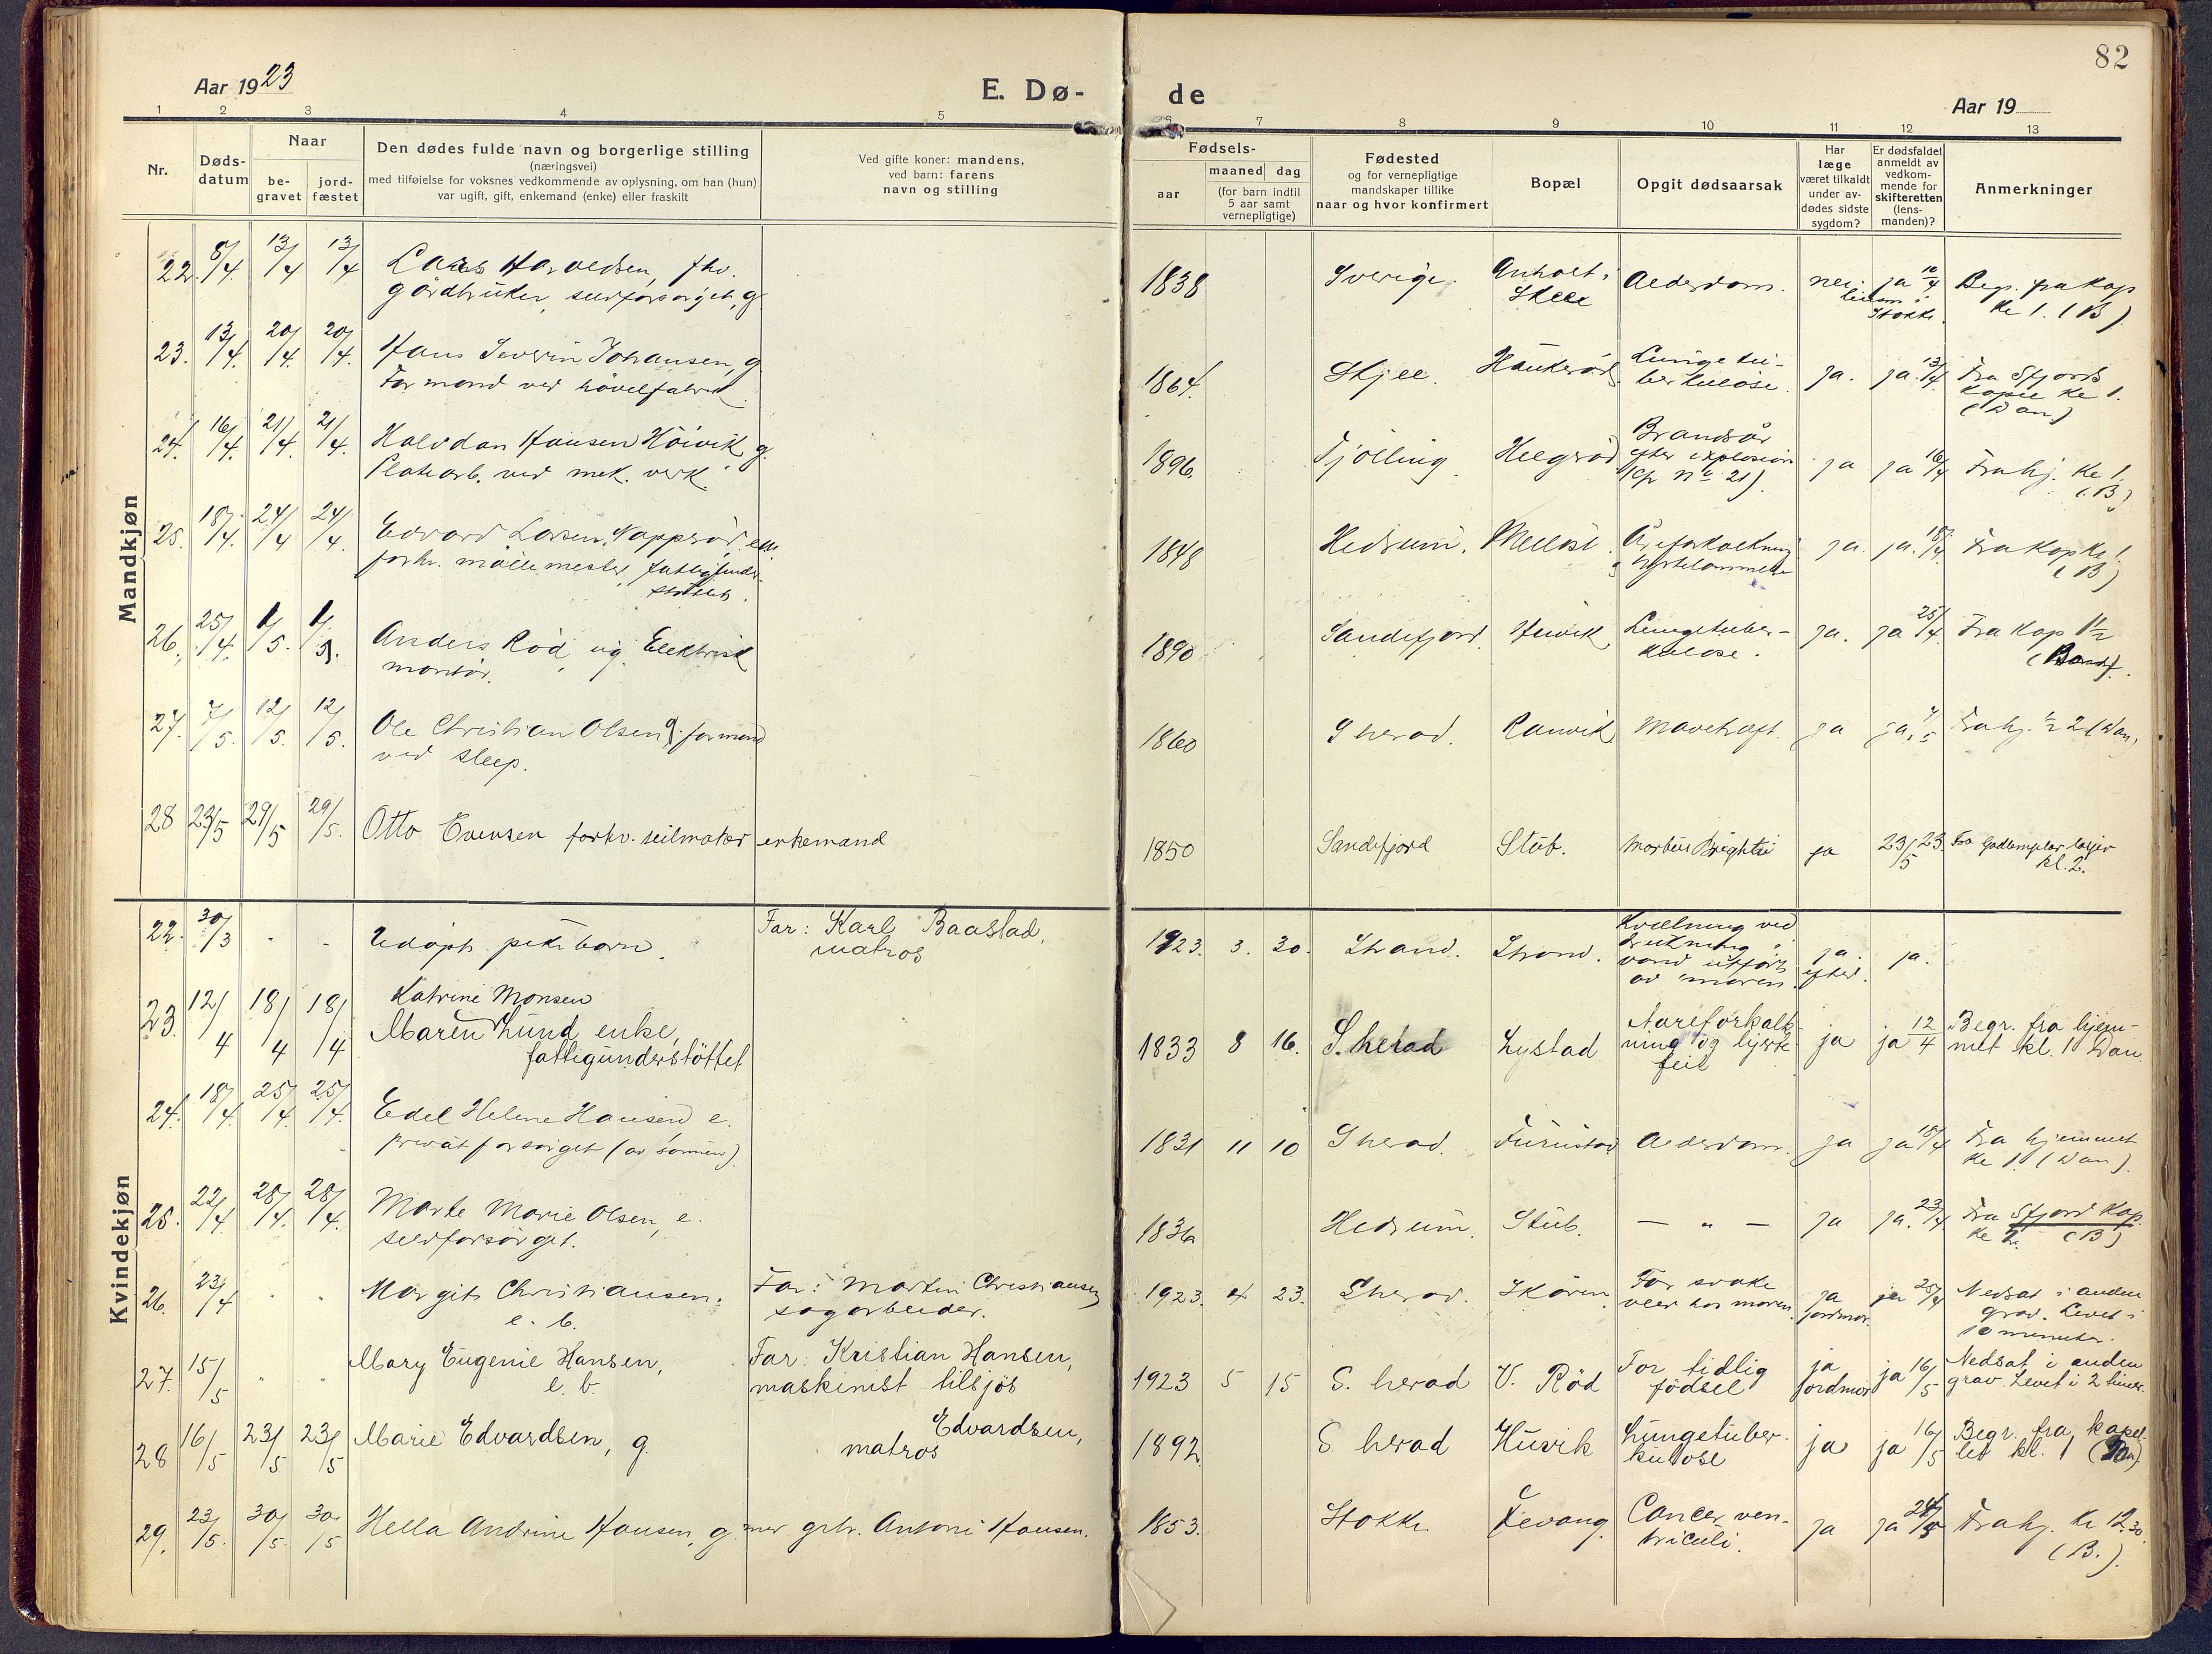 82
Aar 1923
E. Dø-
de
Aar 19
1 2 3 4 5
6 7 8 9 10 11 12 13
Nr.
Døds-
datum
Naar
be-
gravet
jord-
fæstet
Den dødes fulde navn og borgerlige stilling
(næringsvei)
med tilføielse for voksnes vedkommende av oplysning, om han (hun)
var ugift, gift, enkemand (enke) eller fraskilt
Ved gifte koner: mandens,
ved barn: farens
navn og stilling
Fødsels-
aar
maaned dag
(for barn indtil
5 aar samt
vernepligtige)
Fødested
og for vernepligtige
mandskaper tillike
naar og hvor konfirmert
Bopæl
Opgit dødsaarsak
Har
læge
været tilkaldt
under av-
dødes sidste
sygdom?
Er dødsfaldet
anmeldt av
vedkom-
mende for
skifteretten
(lens-
manden)?
Anmerkninger
Mandkjøn
22. 8/4. 13/4 13/4 fhv.
gårdbruker, selvforsørget, g.
1838 Sverige. Alderdom. nei. ja 10/4
Stokke
Begr. fra kap
kl 1. (B)
23. 13/4. 20/4. 20/4. Hans Severin Johansen, g
Formand ved høvelfabrik.
1864. Skjee. Haukerød Lungetu-
berkulose. ja. ja. 13/4. Fra Sfjords
kapel kl 1.
(Dan)
24. 16/4. 21/4. 21/4. Halvdan Hansen Höivik, g.
Platearb. ved mek. verk.
1896. Tjølling Helgerød Brandsår
efter explosion
(cfr No 21). ja ja 16/4 Fra hj. kl 1.
(B)
25. 18/4. 24/4 24/4. Edvard Larsen
forhv. møllemester, fattigunder-
støttet.
1848 Hedrum. Åreforkalkning
hjertelammelse ja. ja. 18/4. Fra kap kl 1.
(B)
26. 25/4. 1/5. 1/5. Anders Rød, ug. Elektrisk
montør.
1890 Sandefjord. Huvik Lungetuber-
kulose. ja. ja 25/4. Fra kap
27. 7/5. 12/5. 12/5. Ole Christian Olsen g. formand
ved sleep.
1860 Sherad. Ranvik Mavekræft. ja ja, 7/5 Fra hj. 2 (Dan)
28 23/5 29/5 29/5. Otto Evensen forhv. seilmaker enkemand
1850 Sandefjord Stub. Morbus Brightii ja 23/5 23. Fra Godtemplar
kl. 2.
Kvindekjøn
22. 30/3 - - Udøpt pikebarn. Far: Karl Baastad,
matros
1923. 3. 30. Strand. Strand. Kvælning ved
drukning i
vand utført
av moren. ja.
efter. ja.
23. 12/4 18/4 18/4 Katrine Monsen
Maren Lund enke,
fattigunderstöttet
1833 8 16. S. herad Lystad Aareforkalk-
ning og hjerte-
feil ja ja 12/4 Begr. fra hjem-
met kl. 1 Dan
24. 18/4 25/4. 25/4. Edel Helene Hansen e.
privat forsørget (av sønnen).
1831 11 10 Sherad. Furustad Alderdom. ja ja 18/4 Fra hjemmet
kl 1. (Dan).
25. 22/4. 28/4. 28/4. Marte Marie Olsen, e.
selvforsørget.
1836 Hedrum. Stub. — " — ja ja. 23/4 Fra Sfjord kap.
kl 2. (B)
26. 23/4 " " Margit Christiansen.
e. b. Far: Martin Christiansen
sagarbeider.
1923. 4 23. Sherad. Skåren For svake
veer hos moren. ja
jordmor. ja 25/4 Nedsat i anden
grav. Levet i
10 minuter.
27. 15/5 " " Mary Eugenie Hansen,
e. b. Far: Kristian Hansen,
maskinist tilsjøs
1923 5 15 S. herad V. Rød For tidlig
födsel ja
jordmor ja 16/5 Nedsat i anden
grav. Levet i 2 timer.
28 16/5 23/5 23/5 Marie Edvardsen, g. Edvardsen,
matros
1892 S. herad Husvik Lungetuber-
kulose ja ja 16/5 Begr. fra kapel-
let kl. 1
29. 23/5. 30/5. 30/5 Hella Andrine Hansen, g. m. gbr. Antoni Hansen.
1853. Stokke Fevang. Cancer ven-
triculi. ja ja 24/5 Fra hj. kl 12.30.
(B.)